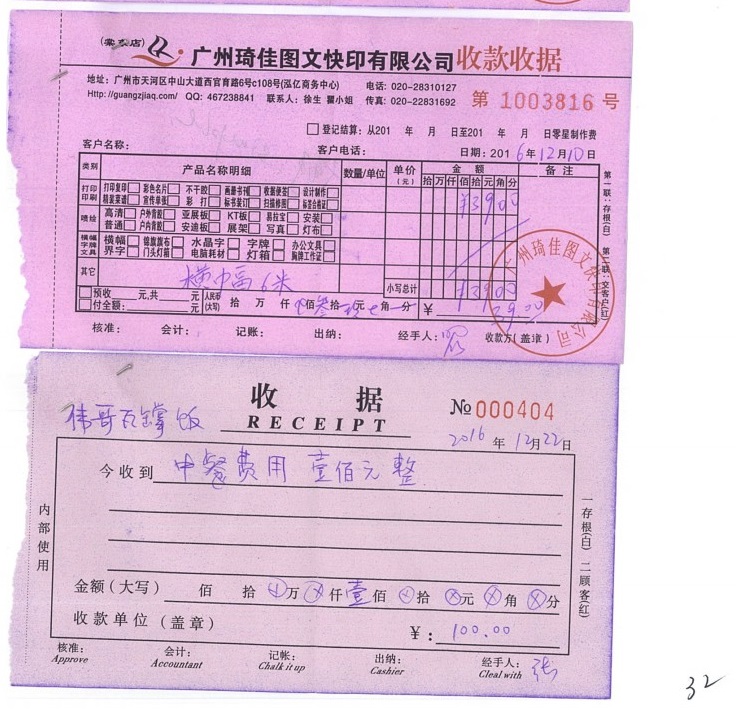 (棠东店) 广州琦佳图文快印有限公司 收款收据
地址：广州市天河区中山大道西官育路6号c108号(泓亿商务中心) 电话: 020-28310127
Http://guangzjiaq.com/ QQ: 467238841 联系人: 徐生 瞿小姐 传真: 020-22831692 第 1003816 号
登记结算: 从201 年 月 日至201 年 月 日零星制作费
客户名称: 客户电话: 日期: 2016年12月10日
类别 产品名称明细 数量/单位 单价(元) 金额 备注
拾万仟佰拾元角分
打印印刷 打印复印 彩色名片 不干胶 画册书刊 收据便签 设计制作
精装菜谱 宣传单张 彩打 标书装订 扫描修图 标签合格证
¥3900
喷绘 高清 户外背胶 亚展板 KT板 易拉宝 安装
普通 户内背胶 安迪板 展架 写真 灯布
横幅字牌文具 横幅 锦旗旗布 水晶字 字牌 办公文具
界字 门头灯箱 电脑耗材 灯箱 胸牌工作证
其它 横巾高6米 小写总计 ¥3900
预收 元,共 元 人民币(大写) 拾 万 仟 佰叁拾 元 角 分 ¥ 39.00
付全额: 元
核准: 会计: 记账: 出纳: 经手人: 收款方(盖章)
第一联: 存根(白) 第二联: 交客户(红)
广州琦佳图文快印有限公司
收据
RECEIPT
№ 000404
伟哥瓦罉饭
2016年12月22日
今收到 中餐费用 壹佰元整
内部使用
一存根(白) 二顾客(红)
金额(大写) 佰 拾 ⊗万 ⊗仟 壹佰 ⊗拾 ⊗元 ⊗角 ⊗分
收款单位(盖章) ¥: 100.00
核准: 会计: 记帐: 出纳: 经手人: 张
Approve Accountant Chalk it up Cashier Cleal with
32